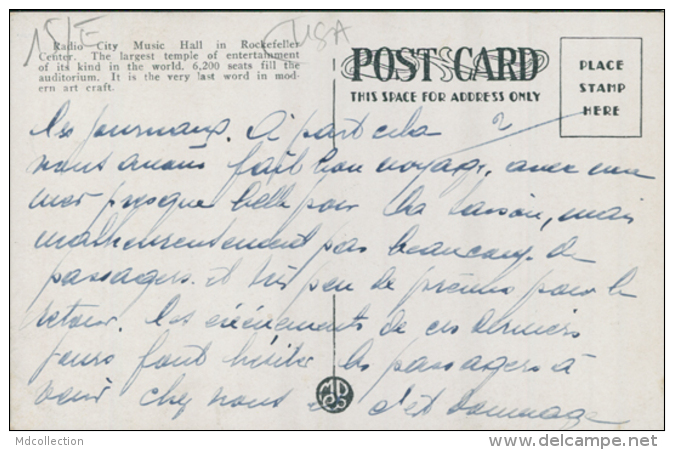 15/E
USA
Radio City Music Hall in Rockefeller
Center. The largest temple of entertainment
of its kind in the world. 6,200 seats fill the
auditorium. It is the very last word in mod-
ern art craft.
POST CARD
THIS SPACE FOR ADDRESS ONLY
PLACE
STAMP
HERE
les journaux. A part cela
nous avons fait bon voyage, avec une
mer presque belle pour la saison, mais
malheureusement pas beaucoup de
passagers. et très peu de prévus pour le
retour. Les évènements de ces derniers
jours font hésiter les passagers à
venir chez nous c'est dommage
MD
Mdcollection